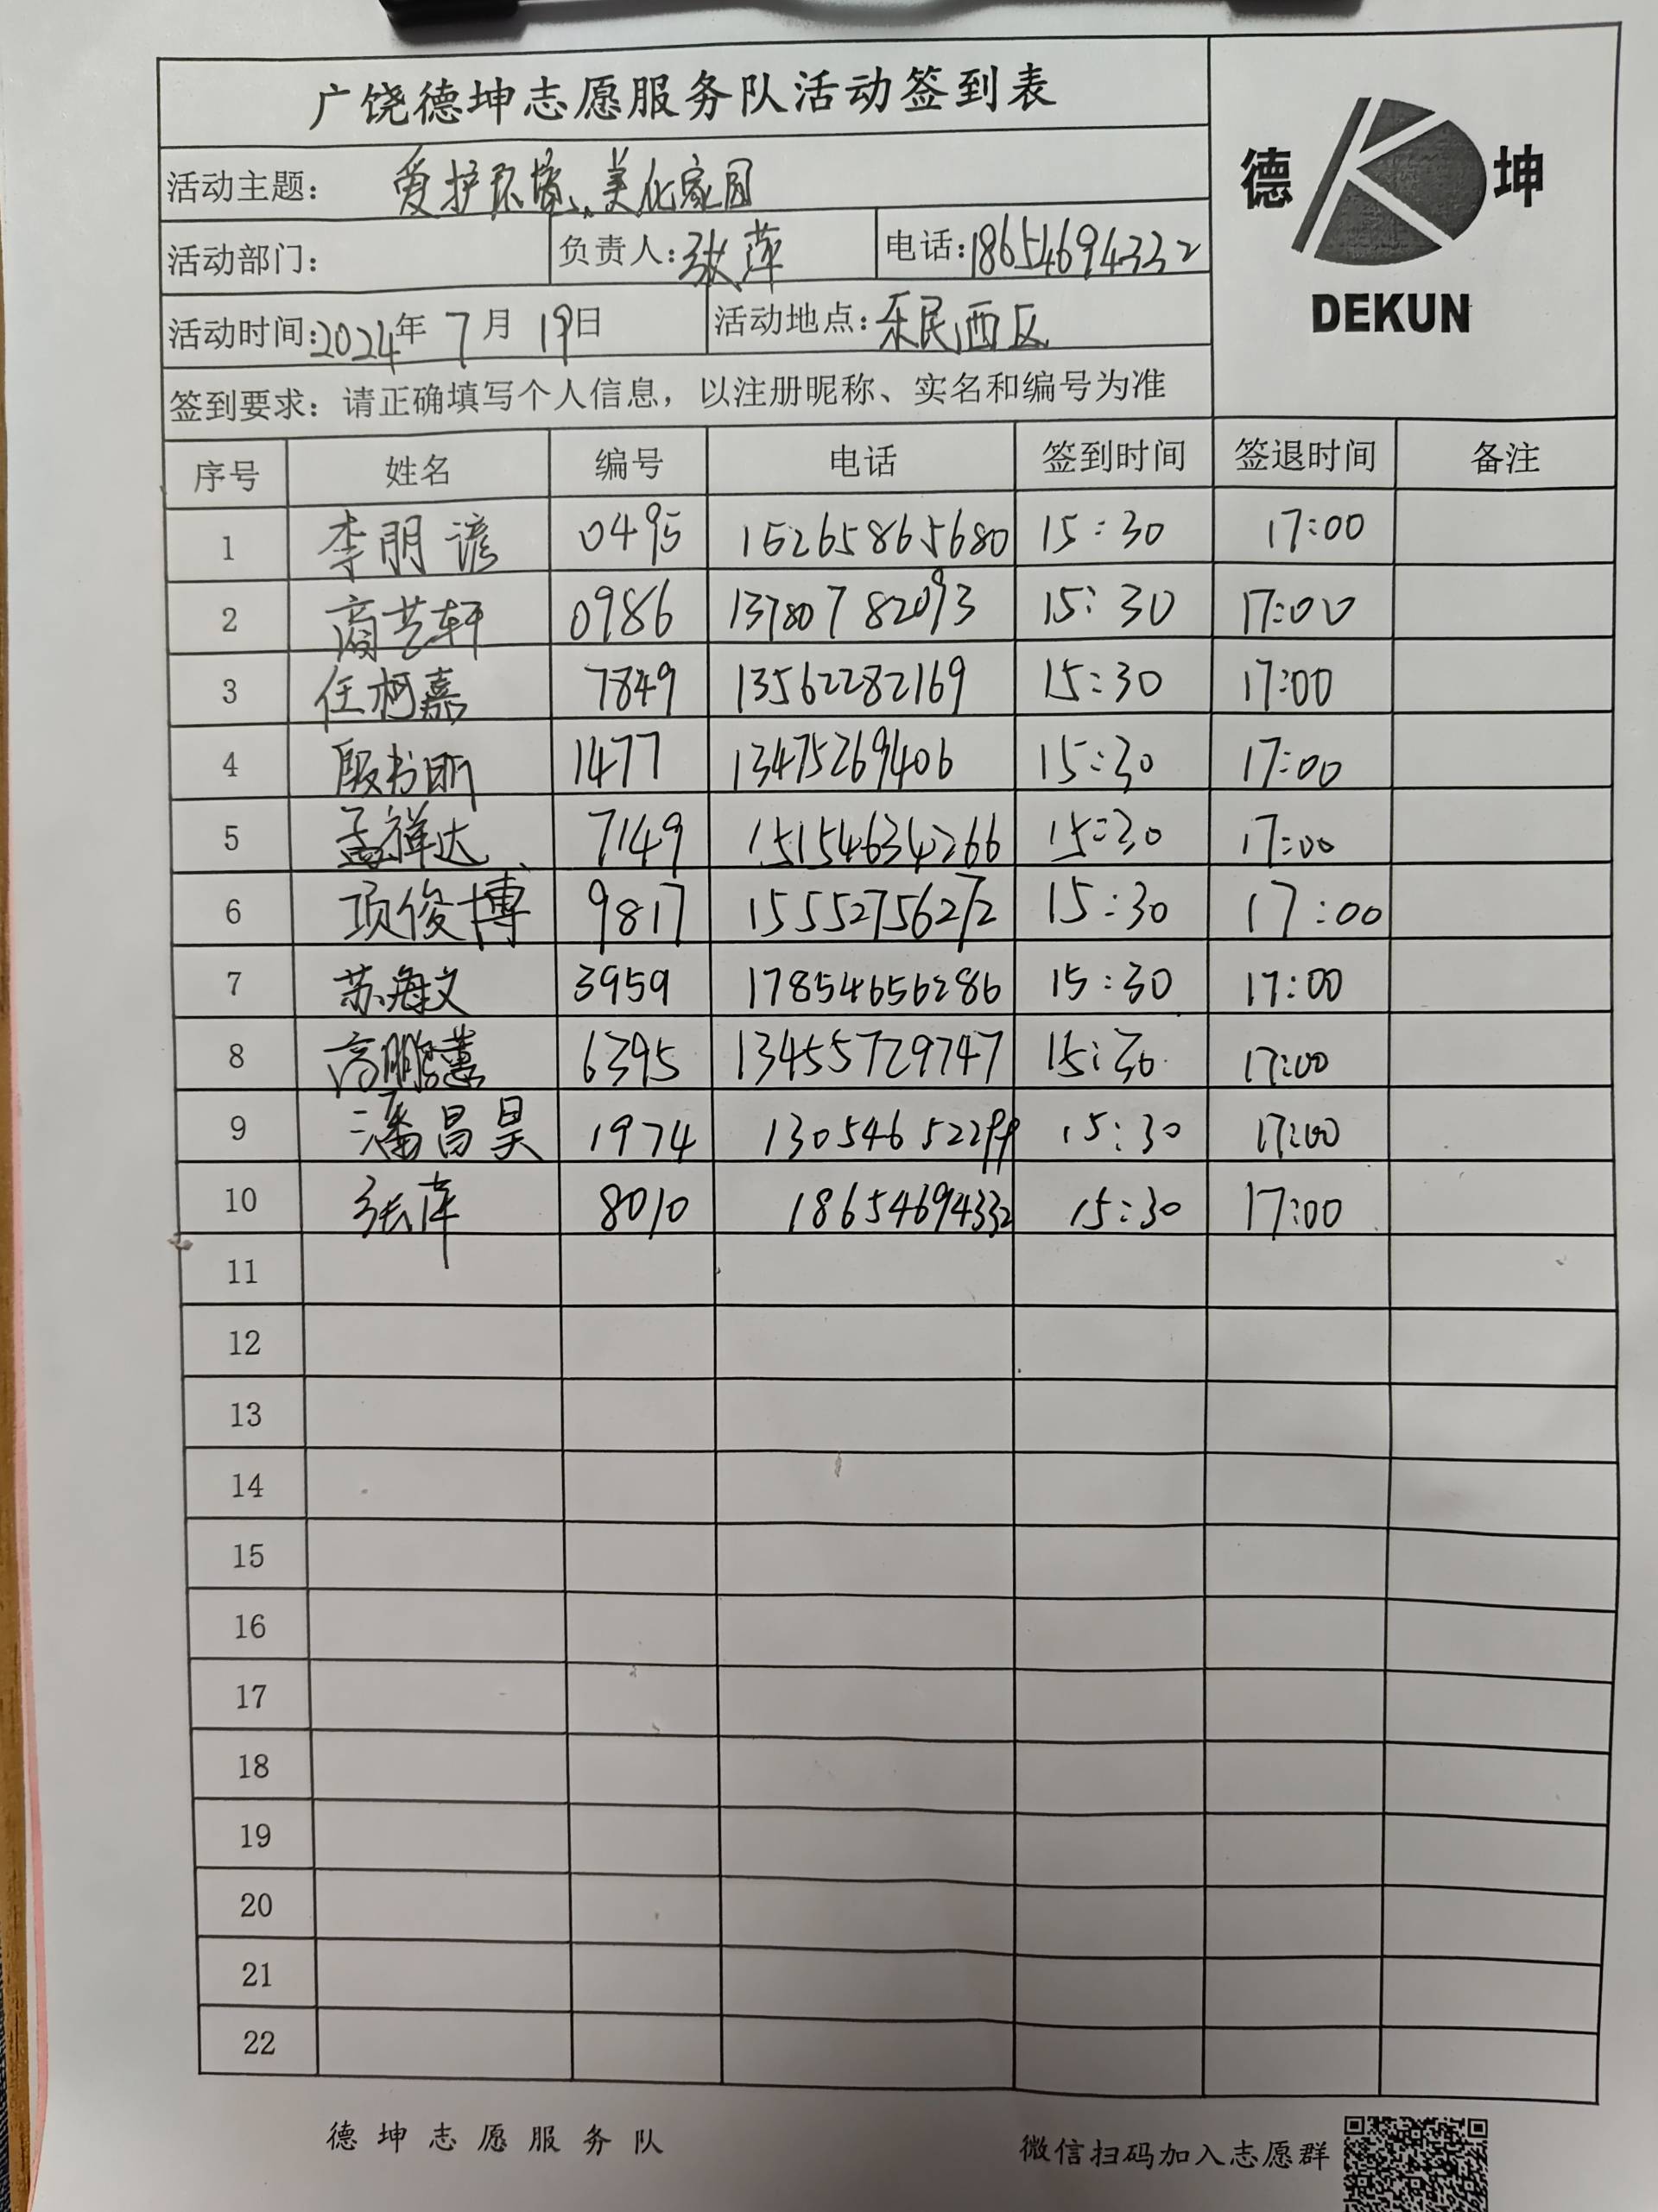 广饶德坤志愿服务队活动签到表
德 坤
DEKUN
活动主题： 爱护环境、美化家园
活动部门： 负责人：张萍 电话：18654694332
活动时间：2024年 7月 19日 活动地点：乐民西区
签到要求：请正确填写个人信息，以注册昵称、实名和编号为准
序号 姓名 编号 电话 签到时间 签退时间 备注
1 李朋谚 0495 15265865680 15:30 17:00
2 商艺轩 0986 13780782093 15:30 17:00
3 任柯嘉 7849 13562282169 15:30 17:00
4 殷书昕 1477 13475269406 15:30 17:00
5 孟祥达 7149 15154634266 15:30 17:00
6 项俊博 9817 15552756272 15:30 17:00
7 苏海文 3959 17854656286 15:30 17:00
8 高鹏慧 6395 13455729747 15:30 17:00
9 潘昌昊 1974 13054652299 15:30 17:00
10 张萍 8010 18654694332 15:30 17:00
11
12
13
14
15
16
17
18
19
20
21
22
德坤志愿服务队 微信扫码加入志愿群